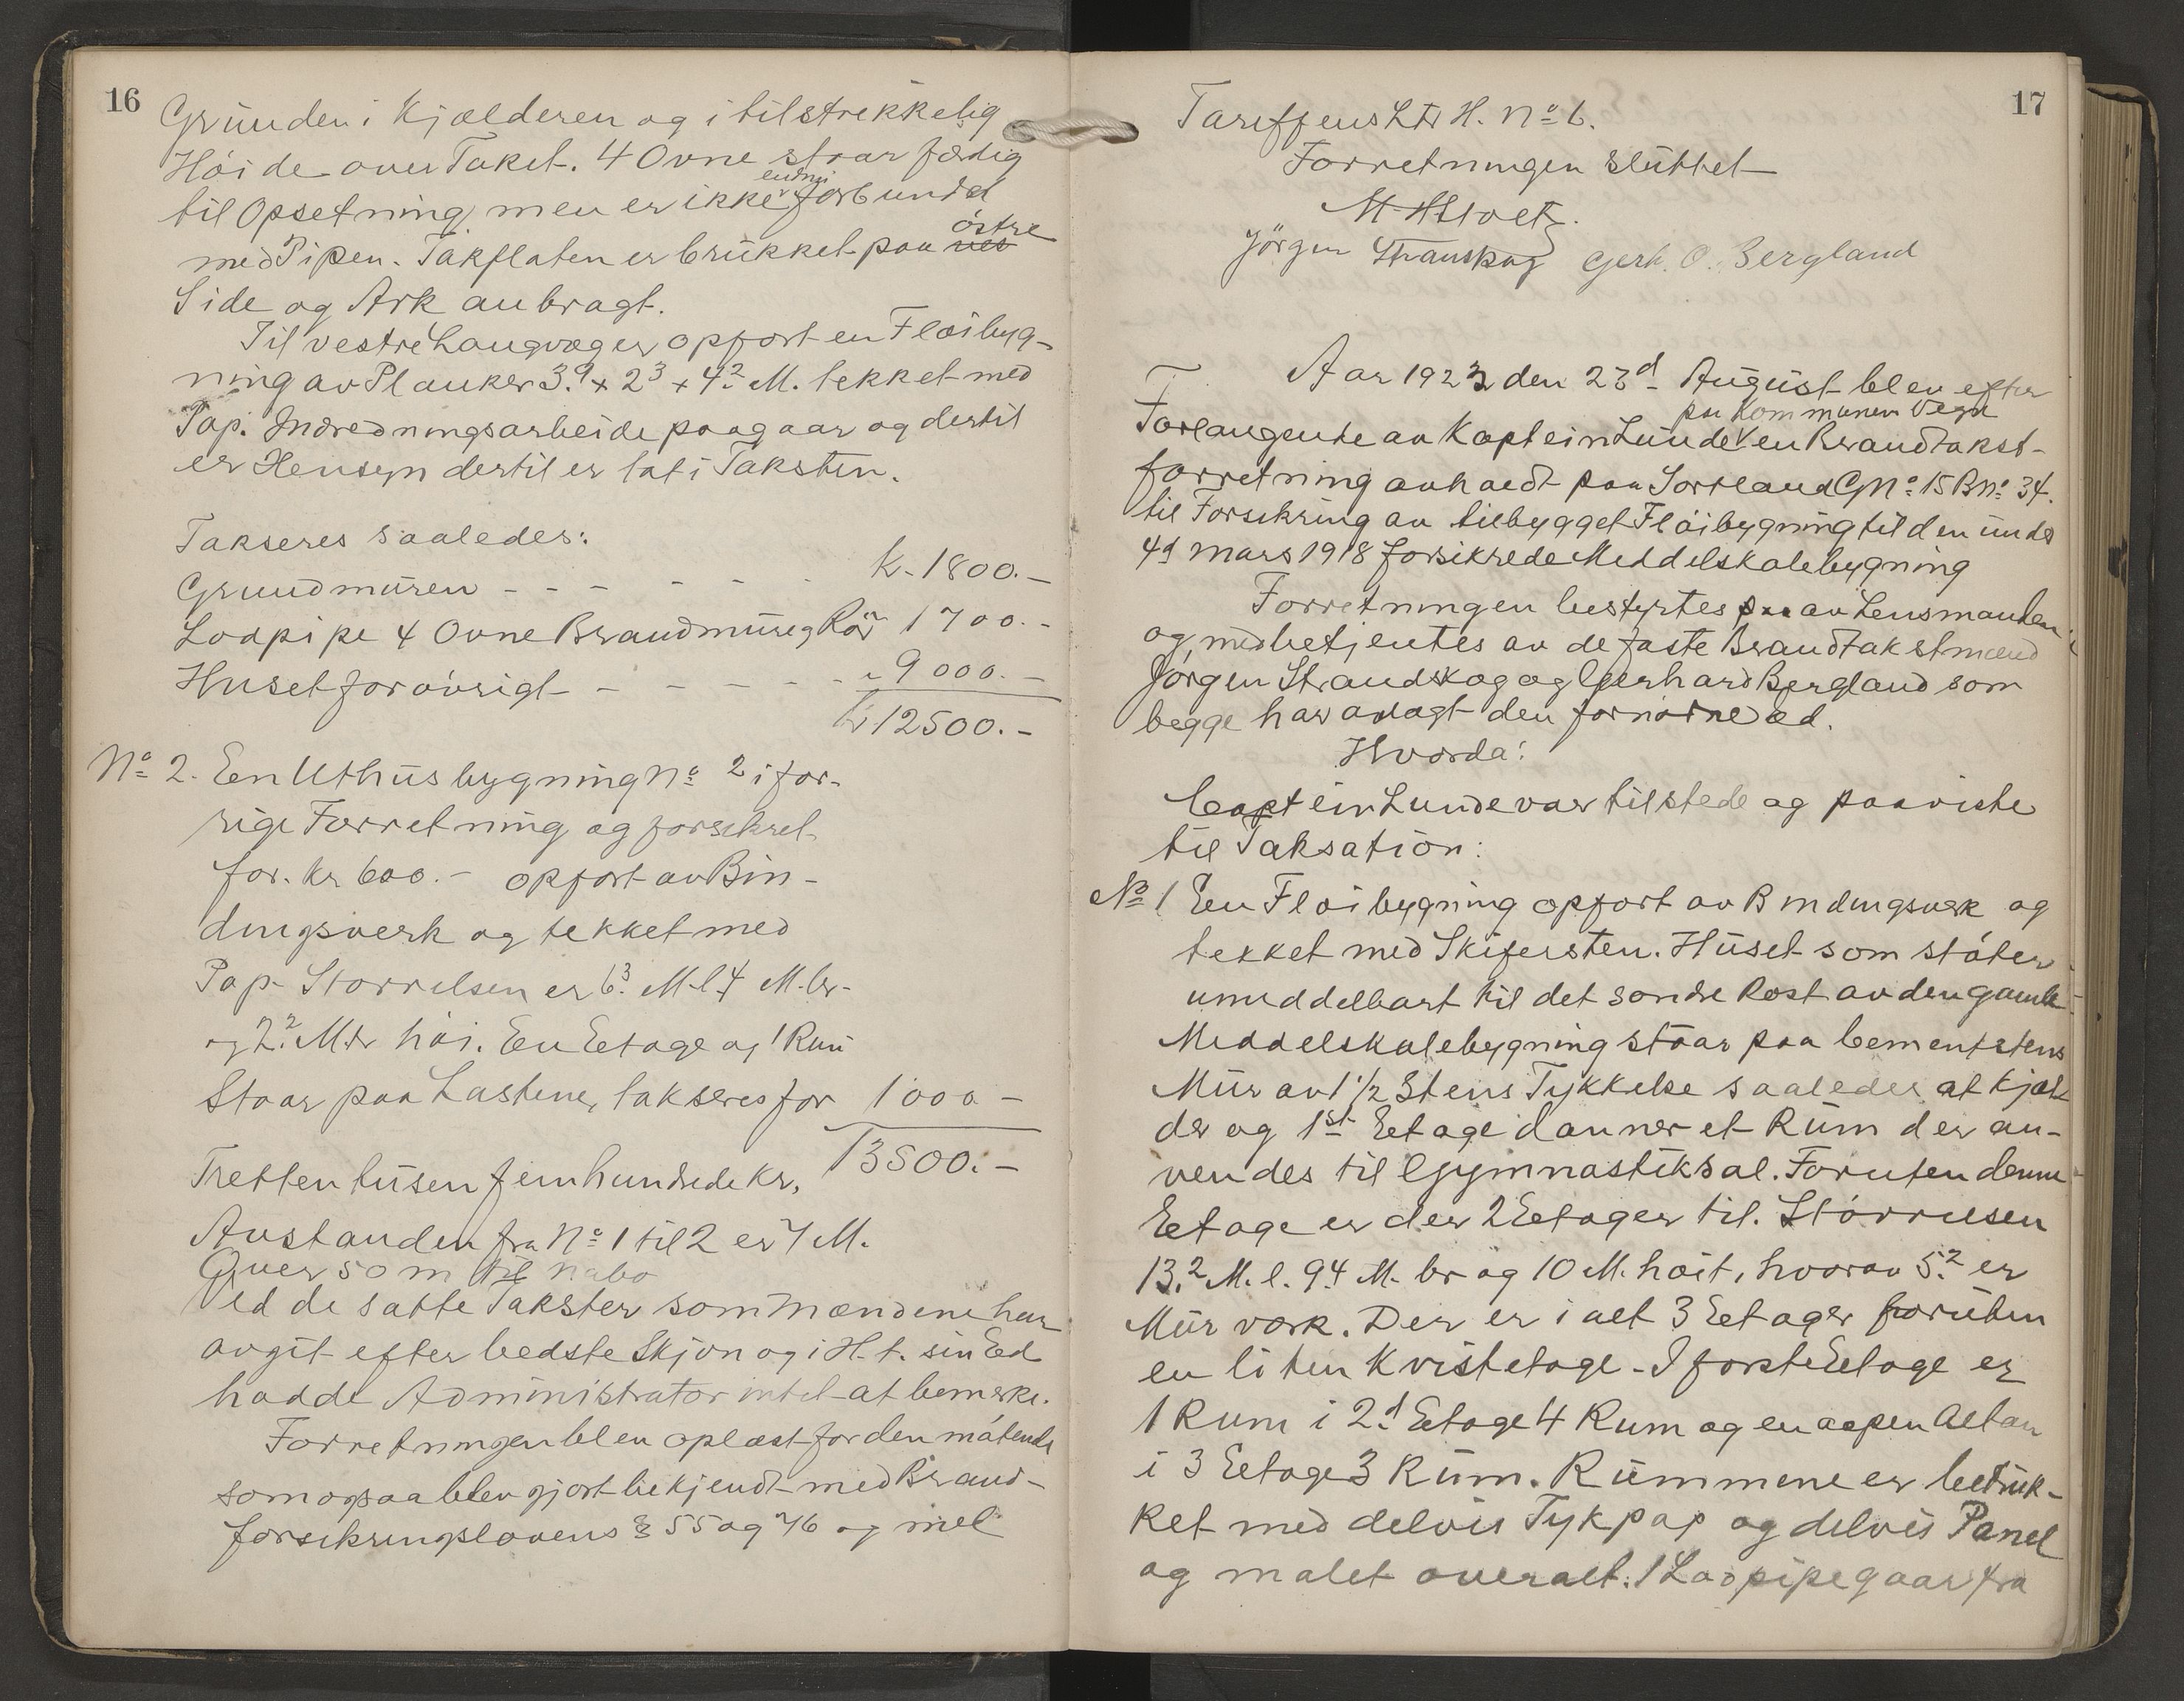 16
Grunden i Kjælderen og i tilstrekkelig
Høide over Taket. 4 Ovne staar færdig
til Opsetning, men er ikke endnu forbundet
med Pipen. Takflaten er brukket paa ves østre
Side og Ark anbragt.
Til vestre Langvæg er opført en Fløibyg-
ning av Planker 3.9 x 2 3 x 4.2 M. tekket med
Pap. Indredningsarbeide paagaar og dertil
er Hensyn dertil er tat i Taksten.
Takseres saaledes:
Grundmuren - - - - - - k. 1800.-
Lodpipe 4 Ovne Brandmur og Rør 1700.-
Huset forøvrigt - - - - - " 9000.-
kr 12500.-
No 2. En Uthusbygning No 2 i for-
rige Forretning og forsikret
for. kr 600.- opført av Bin-
dingsverk og tekket med
Pap. Størrelsen er 6.3 M. l. 4 M. br.
og 2.2 Mtr høi. En Etage og 1 Rum
Staar paa Lastene, takseres for 1000 -
13500.-
Trettentusen femhundrede kr.
Avstanden fra No 1 til 2 er 7 M.
Over 50 m til nabo
Ved de satte Takster som Mændene har
avgit efter bedste Skjøn og i H. t. sin Ed
hadde Administrator intet at bemerke.
Forretningen blev oplæst for den møtende
som ogsaa blev gjort bekjendt med Brand-
forsikringslovens § 55 og 76 og med
17
Tariffens Ltr H. No 6.
Forretningen sluttet
Jørgen Strandskog Gerh. O. Bergland
Aar 1922 den 23d August blev efter
Forlangente av Kaptein Lunde paa Kommunens Vegn en Brandtakst-
forretning avholdt paa Sørland GNo 15 Bno 34.
til Forsikring av tilbygget Fløibygning til den under
4d Mars 1918 forsikrede Middelskolebygning
Forretningen bestyrtes paa av Lensmanden
og medbetjentes av de faste Brandtakstmænd
Jørgen Strandskog og Gerhard Bergland som
begge har avlagt den fornødne Ed.
Hvorda:
Captein Lunde var tilstede og paaviste
til Taksation:
No 1 En Fløibygning opført av Bindingsverk og
tekket med Skifersten. Huset som støter
umiddelbart til det søndre Røst av den gamle
Middelskolebygning staar paa Cementstens
Mur av 1 1/2 Stens Tykkelse saaledes at Kjæl-
der og 1st Etage danner et Rum der an-
vendes til Gymnastiksal. Foruten denne
Etage er der 2 Etager til. Størrelsen
13.2 M. l. 9.4 M. br og 10 M. høit, hvorav 5.2 er
Murværk. Der er i alt 3 Etager foruten
en liten Kvistetage. I første Etage er
1 Rum i 2.d Etage 4 Rum og en aapen Altan
i 3 Etage 3 Rum. Rummene er betruk-
ket med delvis Tykpap og delvis Panel
og malet overalt. 1 Lodpipe gaar fra